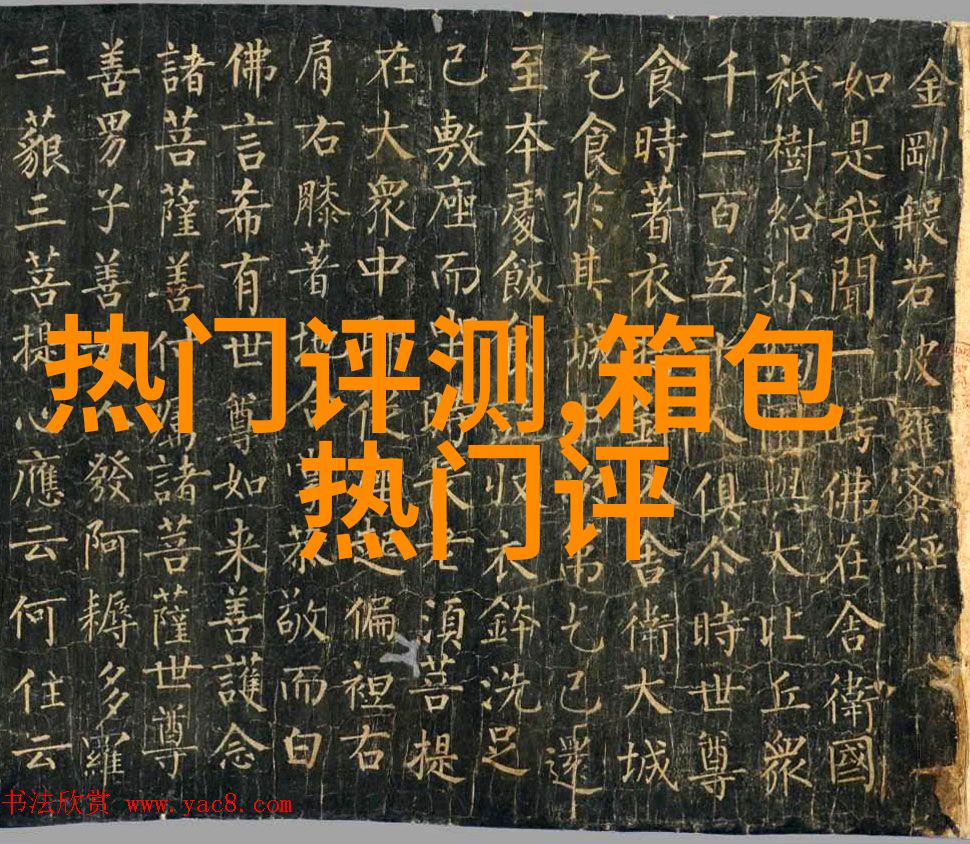 热门评测,箱包
热门评
金剛般若波羅蜜經
如是我聞一時佛在舍衛國
祇樹給孤園與大比丘衆
千二百五十人俱尒時世尊
食時著衣入舍衛大城
乞食於其城乞已還
至本處飯食收衣鉢洗足
已敷座而坐時長老須菩提
在大衆中即從起偏袒右
肩右膝著地合掌恭敬而白
佛言希有世尊如来善護念
諸菩薩善付囑諸菩薩世尊
善男子善女人發阿耨多羅
三藐三菩提心應云何住云
书法欣赏 www.yac8.com